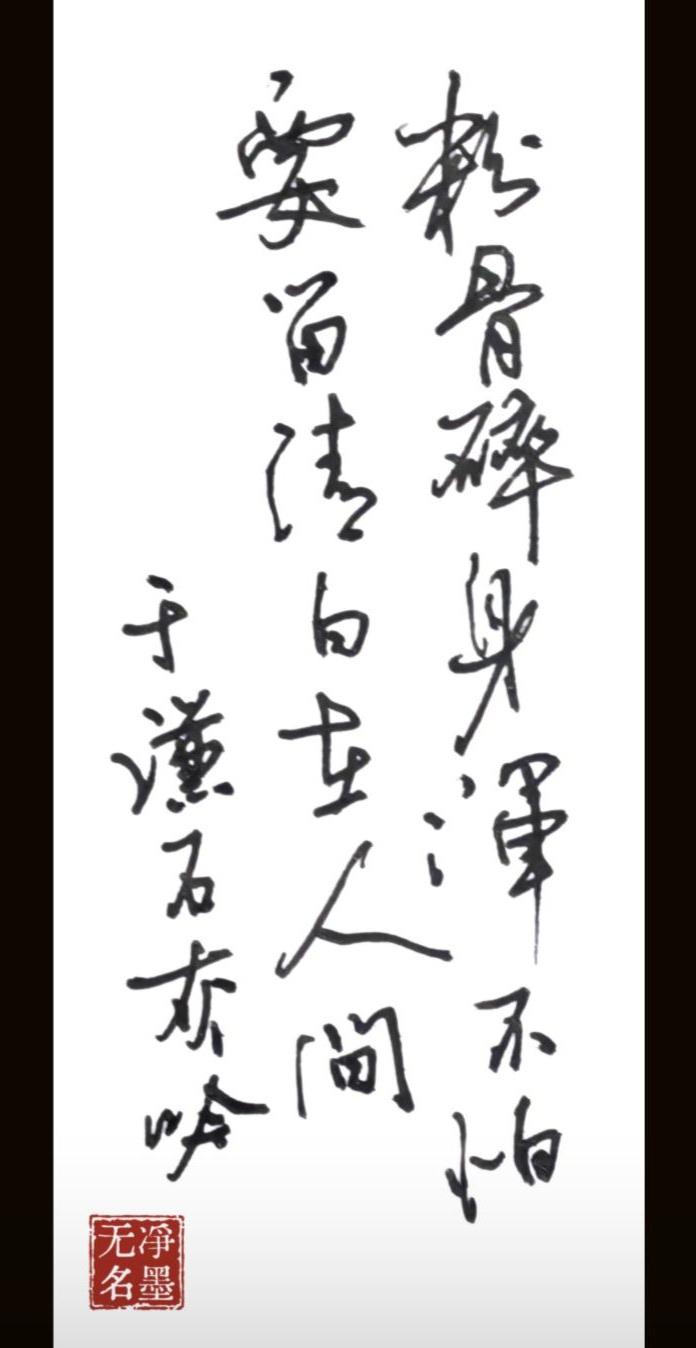 粉骨碎身渾不怕
要留清白在人间
于谦石灰吟
凈墨
无名